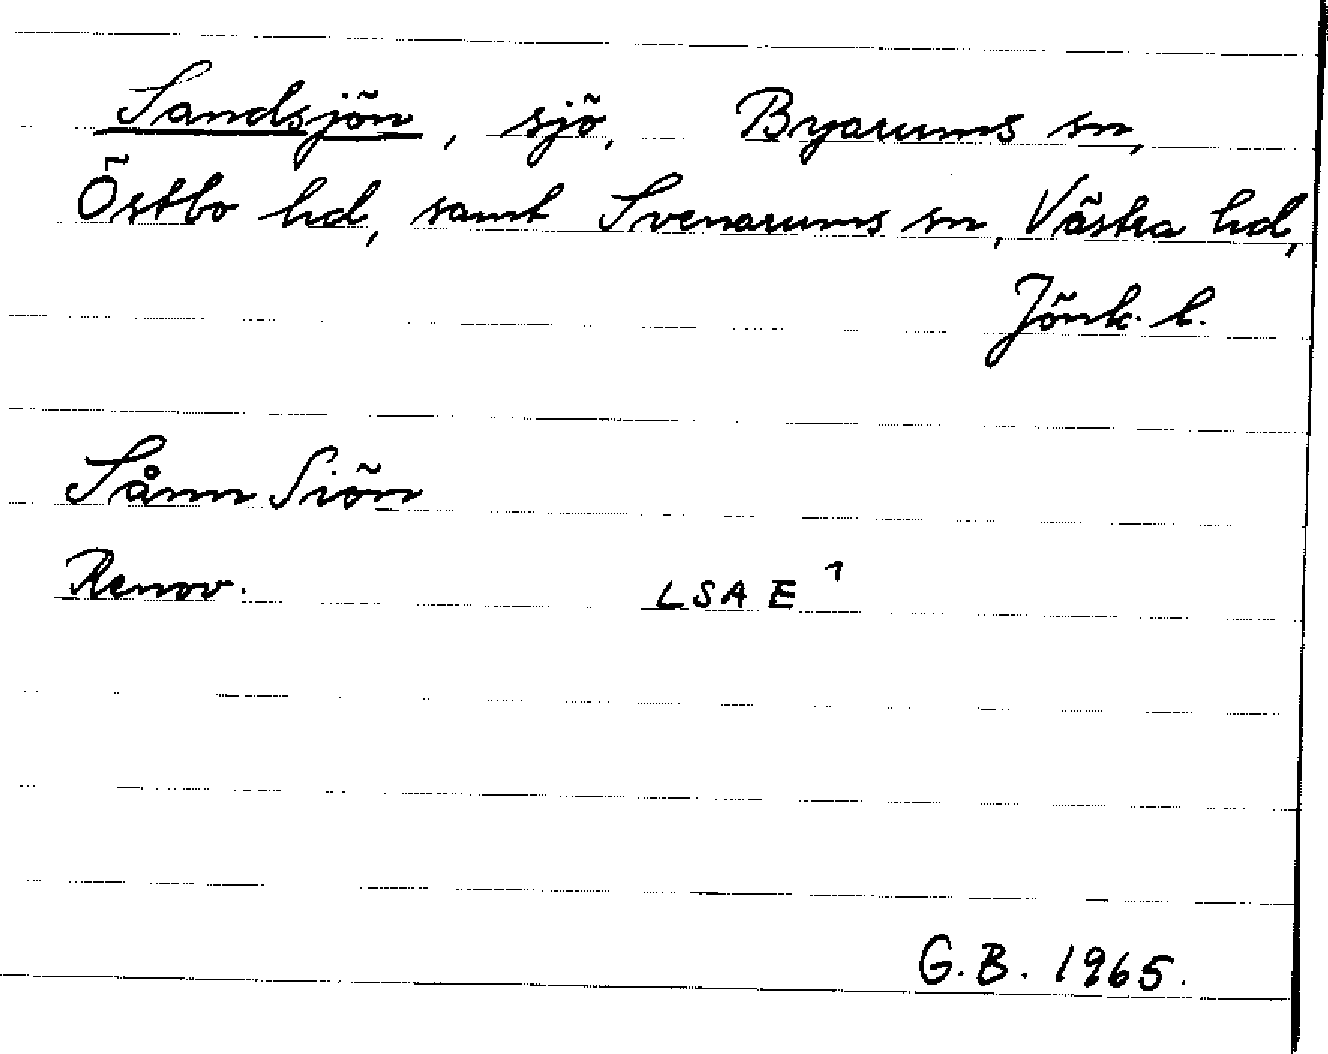 Sandsjön, sjö, Bryarums sn,
Östbo hd, samt Svenarums sn, Västra hd,
Jönk. l.
Sånn Siön
Renov. LSA E 1
G.B. 1965.